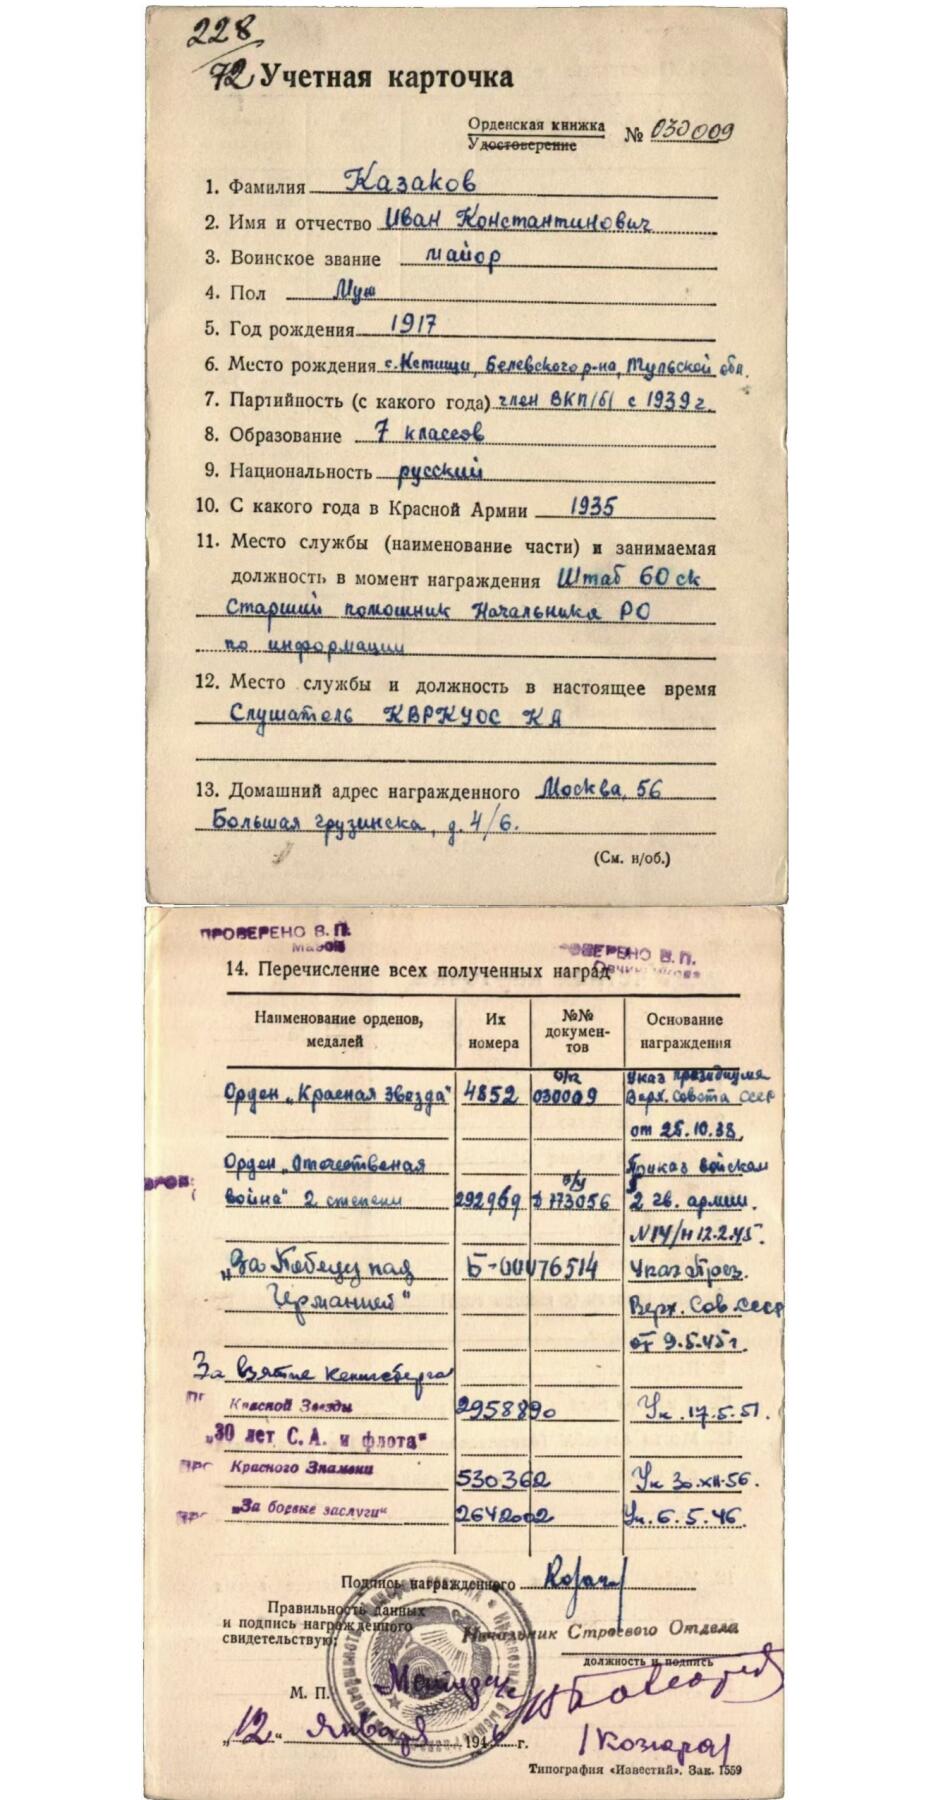 228
72 Учетная карточка
Орденская книжка
Удостоверение № 030009
1. Фамилия Казаков
2. Имя и отчество Иван Константинович
3. Воинское звание майор
4. Пол Муж
5. Год рождения 1917
6. Место рождения с. Кетищи, Белевского р-на, Тульской обл.
7. Партийность (с какого года) член ВКП/б/ с 1939 г.
8. Образование 7 классов
9. Национальность русский
10. С какого года в Красной Армии 1935
11. Место службы (наименование части) и занимаемая
должность в момент награждения Штаб 60 ск
Старший помошник Начальника РО
по информации
12. Место службы и должность в настоящее время
Слушатель КВРКУОС КА
13. Домашний адрес награжденного Москва, 56
Большая грузинска, д. 4/6.
(См. н/об.)
ПРОВЕРЕНО В. П.
ПРОВЕРЕНО В. П.
Овчинникова
14. Перечисление всех полученных наград
Наименование орденов, медалей Их номера №№ докумен-тов Основание награждения
Орден „Красная Звезда" 4852 о/к 030009 Указ президиума
Верх. Совета СССР
от 25.10.38.
Орден „Отечественая Приказ войскам
война" 2 степени 292969 173056 2 гв. армии.
N14/н 12.2.45.
„За Победу над Б-00476514 Указ През.
Германией" Верх. Сов. СССР
от 9.5.45 г.
За взятие Кенигсберга
Красной Звезды 2958890 Ук. 17.5.51.
„30 лет С. А. и флота"
Красного Знамени 530362 Ук 30.XII.56.
„За боевые заслуги" 2642002 Ук. 6.5.46.
Подпись награжденного
Правильность данных
и подпись награжденного
свидетельствую:
Начальник Строевого Отдела
должность и подпись
М. П.
„12" Января 1946 г.
Типография «Известий». Зак. 1559